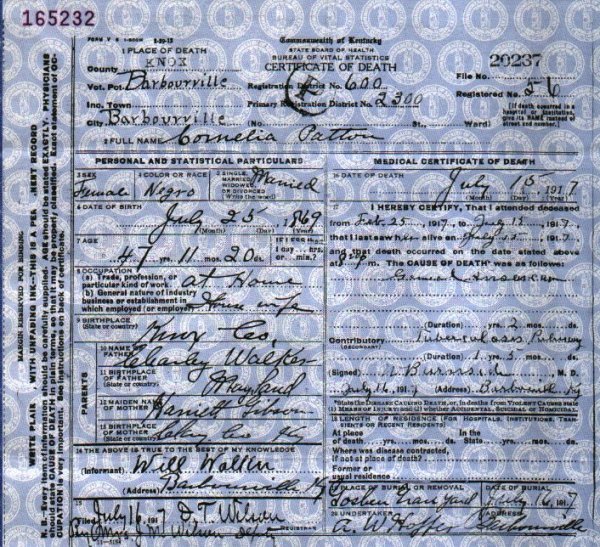 165232
Commonwealth of Kentucky
STATE BOARD OF HEALTH
BUREAU OF VITAL STATISTICS
CERTIFICATE OF DEATH
1 PLACE OF DEATH
County KNOX
File No. 20237
Vot. Pct. Barbourville
Registration District No. 600
Registered No. 56
Inc. Town Barbourville
Primary Registration District No. 2300
[If death occurred in a hospital or institution, give its NAME instead of street and number.]
City Barbourville (No. St., Ward)
2 FULL NAME Cornelia Patton
PERSONAL AND STATISTICAL PARTICULARS
3 SEX Female
4 COLOR OR RACE Negro
5 SINGLE, MARRIED, WIDOWED, OR DIVORCED (Write the word) Married
6 DATE OF BIRTH
July 25, 1869
(Month) (Day) (Year)
7 AGE
47 yrs. 11 mos. 20 ds.
IF LESS than 1 day hrs. or min.?
8 OCCUPATION
(a) Trade, profession, or particular kind of work At Home
(b) General nature of industry business or establishment in which employed (or employer) House wife
9 BIRTHPLACE (State or country) Knox Co,
PARENTS
10 NAME OF FATHER Charley Walker
11 BIRTHPLACE OF FATHER (State or country) Mayland
12 MAIDEN NAME OF MOTHER Harriett Gibson
13 BIRTHPLACE OF MOTHER (State or country) Ky
14 THE ABOVE IS TRUE TO THE BEST OF MY KNOWLEDGE
(Informant) Will Walker
(Address) Barbourville Ky
15
Filed July 16, 1917 D. T. Wilson
REGISTRAR
J. M. Wilson Depty
MEDICAL CERTIFICATE OF DEATH
16 DATE OF DEATH
July 15, 1917
(Month) (Day) (Year)
17 I HEREBY CERTIFY, That I attended deceased
from Feb 25, 1917, to July 12, 1917,
that I last saw her alive on July 12, 1917,
and that death occurred on the date stated above
at m. The CAUSE OF DEATH* was as follows:
(Duration) yrs. 2 mos. ds.
Contributory Tuberculoses Pulmonary
(SECONDARY)
(Duration) 1 yrs. 3 mos. ds.
(Signed) Burnside, M. D.
July 16, 1917 (Address) Barbourvill Ky
*State the DISEASE CAUSING DEATH, or, in deaths from VIOLENT CAUSES state (1) MEANS OF INJURY; and (2) whether ACCIDENTAL, SUICIDAL or HOMICIDAL.
18 LENGTH OF RESIDENCE (FOR HOSPITALS, INSTITUTIONS, TRANSIENTS OR RECENT RESIDENTS)
At place of death yrs. mos. ds. In the State yrs. mos. ds.
Where was disease contracted, if not at place of death?
Former or usual residence
19 PLACE OF BURIAL OR REMOVAL
DATE OF BURIAL
July 16, 1917
20 UNDERTAKER
ADDRESS
A. W. Hopper Barbourville
MARGIN RESERVED FOR BINDING